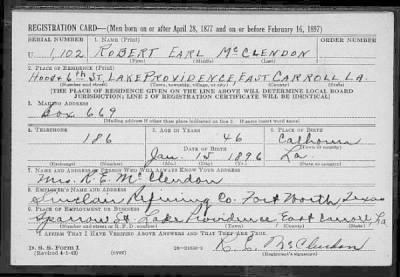 REGISTRATION CARD—(Men born on or after April 28, 1877 and on or before February 16, 1897)
SERIAL NUMBER 1. NAME (Print) ORDER NUMBER
U 1,102 ROBERT EARL McCLENDON
(First) (Middle) (Last)
2. PLACE OF RESIDENCE (Print)
Hood & 6th St. LAKE PROVIDENCE, EAST CARROLL LA.
(Number and street) (Town, township, village, or city) (County) (State)
[THE PLACE OF RESIDENCE GIVEN ON THE LINE ABOVE WILL DETERMINE LOCAL BOARD
JURISDICTION; LINE 2 OF REGISTRATION CERTIFICATE WILL BE IDENTICAL]
3. MAILING ADDRESS
Box 669
[Mailing address if other than place indicated on line 2. If same insert word same]
4. TELEPHONE 5. AGE IN YEARS 6. PLACE OF BIRTH
186 46 Calhoun
DATE OF BIRTH (Town or county)
Jan. 15 1896 La
(Exchange) (Number) (Mo.) (Day) (Yr.) (State or country)
7. NAME AND ADDRESS OF PERSON WHO WILL ALWAYS KNOW YOUR ADDRESS
Mrs. R. E. McClendon
8. EMPLOYER'S NAME AND ADDRESS
Sinclair Refining Co. Fort Worth, Texas
9. PLACE OF EMPLOYMENT OR BUSINESS
Sparrow St. Lake Providence East Carroll La
(Number and street or R. F. D. number) (Town) (County) (State)
I AFFIRM THAT I HAVE VERIFIED ABOVE ANSWERS AND THAT THEY ARE TRUE.
D. S. S. Form 1
(Revised 4-1-42) (over) 16—21630-2 R. E. McClendon
(Registrant's signature)